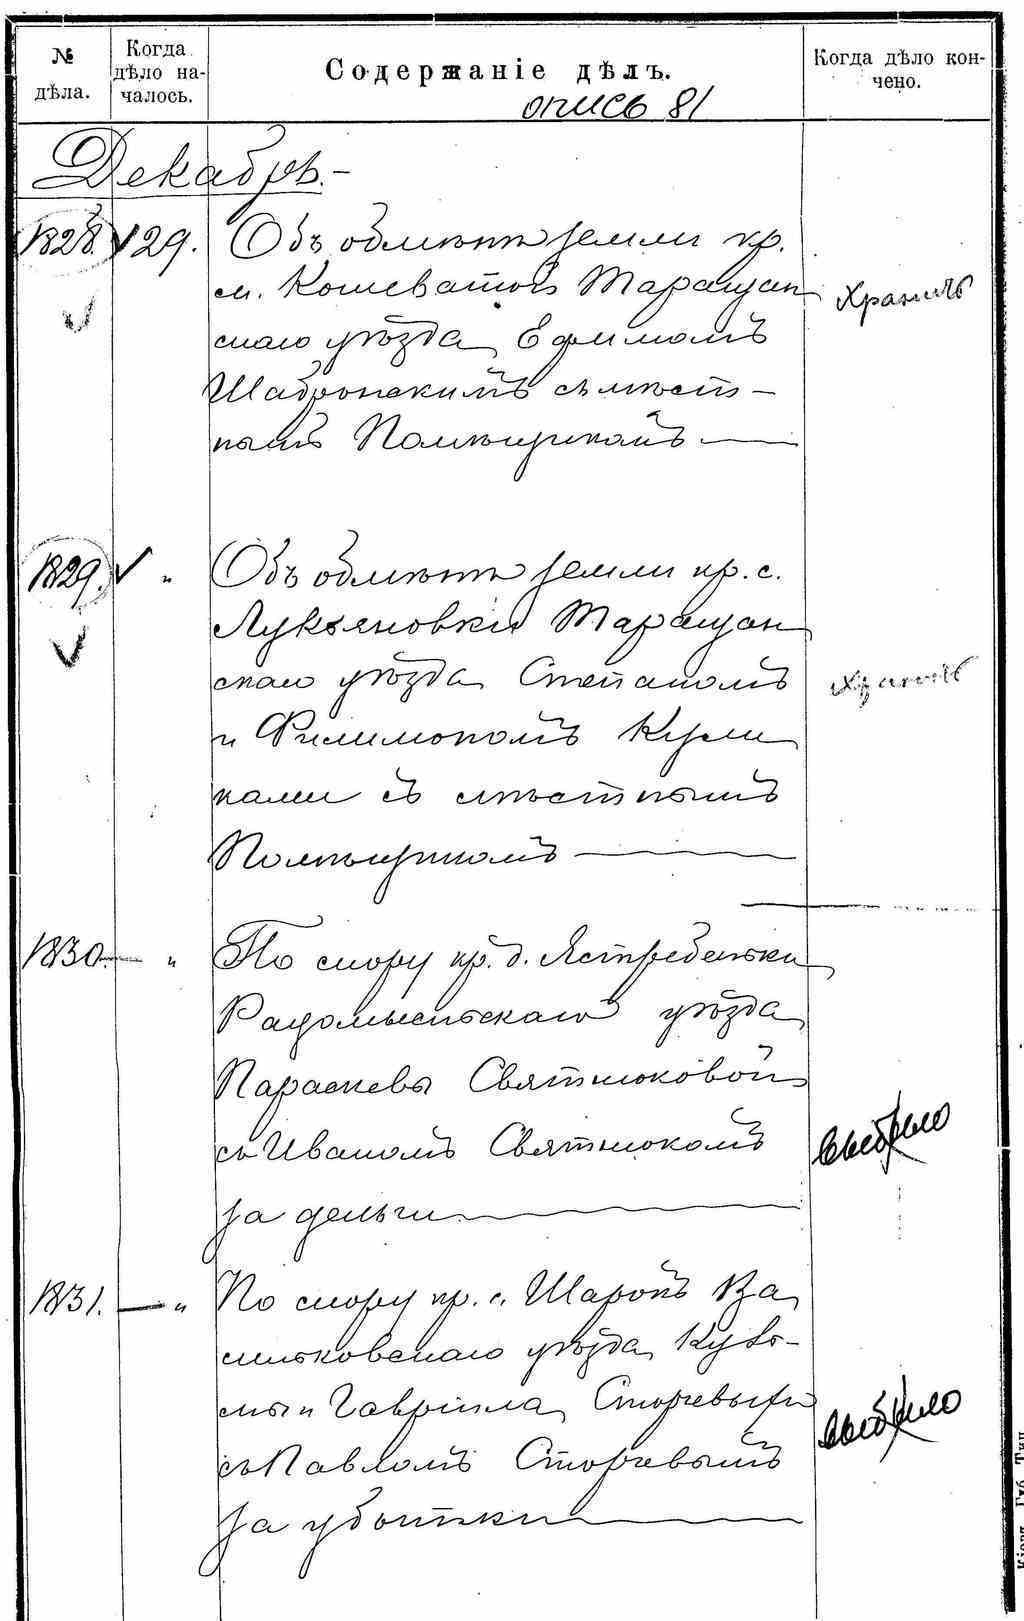 № дѣла.
Когда дѣло началось.
Содержаніе дѣлъ.
Когда дѣло кончено.
опись 81
Декабрь.-
1828. 29. Объ обмѣнѣ земли кр.
м. Кошеватой Таращан
скаго уѣзда Ефимомъ
Шабронскимъ съ мѣст-
нымъ Помѣщикомъ
Хранить
1829. " Объ обмѣнѣ земли кр. с.
Лукьяновки Таращан
скаго уѣзда Степаномъ
и Филимономъ
ками съ мѣстнымъ
Помѣщикомъ
Хранить
1830. — " По спору кр. д. Ястребеньки
Радомысльскаго уѣзда
Параскевы Святненковой
съ Иваномъ Святненкомъ
за деньги
выбыло
1831. — " По спору кр. с. Шаропъ Ва
сильковскаго уѣзда Кузь-
мы и Гавріила Сторчевыхъ
съ Павломъ Сторчевымъ
за убытки
выбыло
Кіевъ, Губ. Тип.